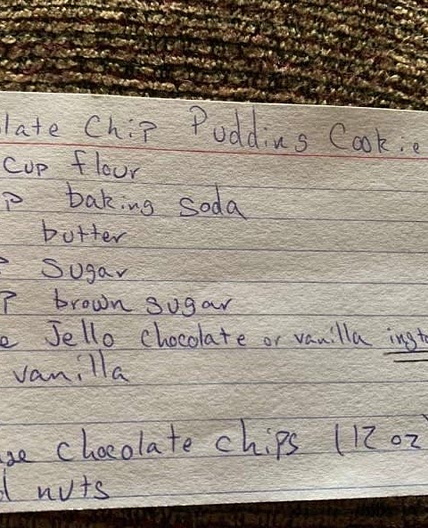 late Chip Pudding Cookie
cup flour
p baking soda
butter
sugar
p brown sugar
e Jello chocolate or vanilla insta
vanilla
ge chocolate chips (12 oz)
d nuts